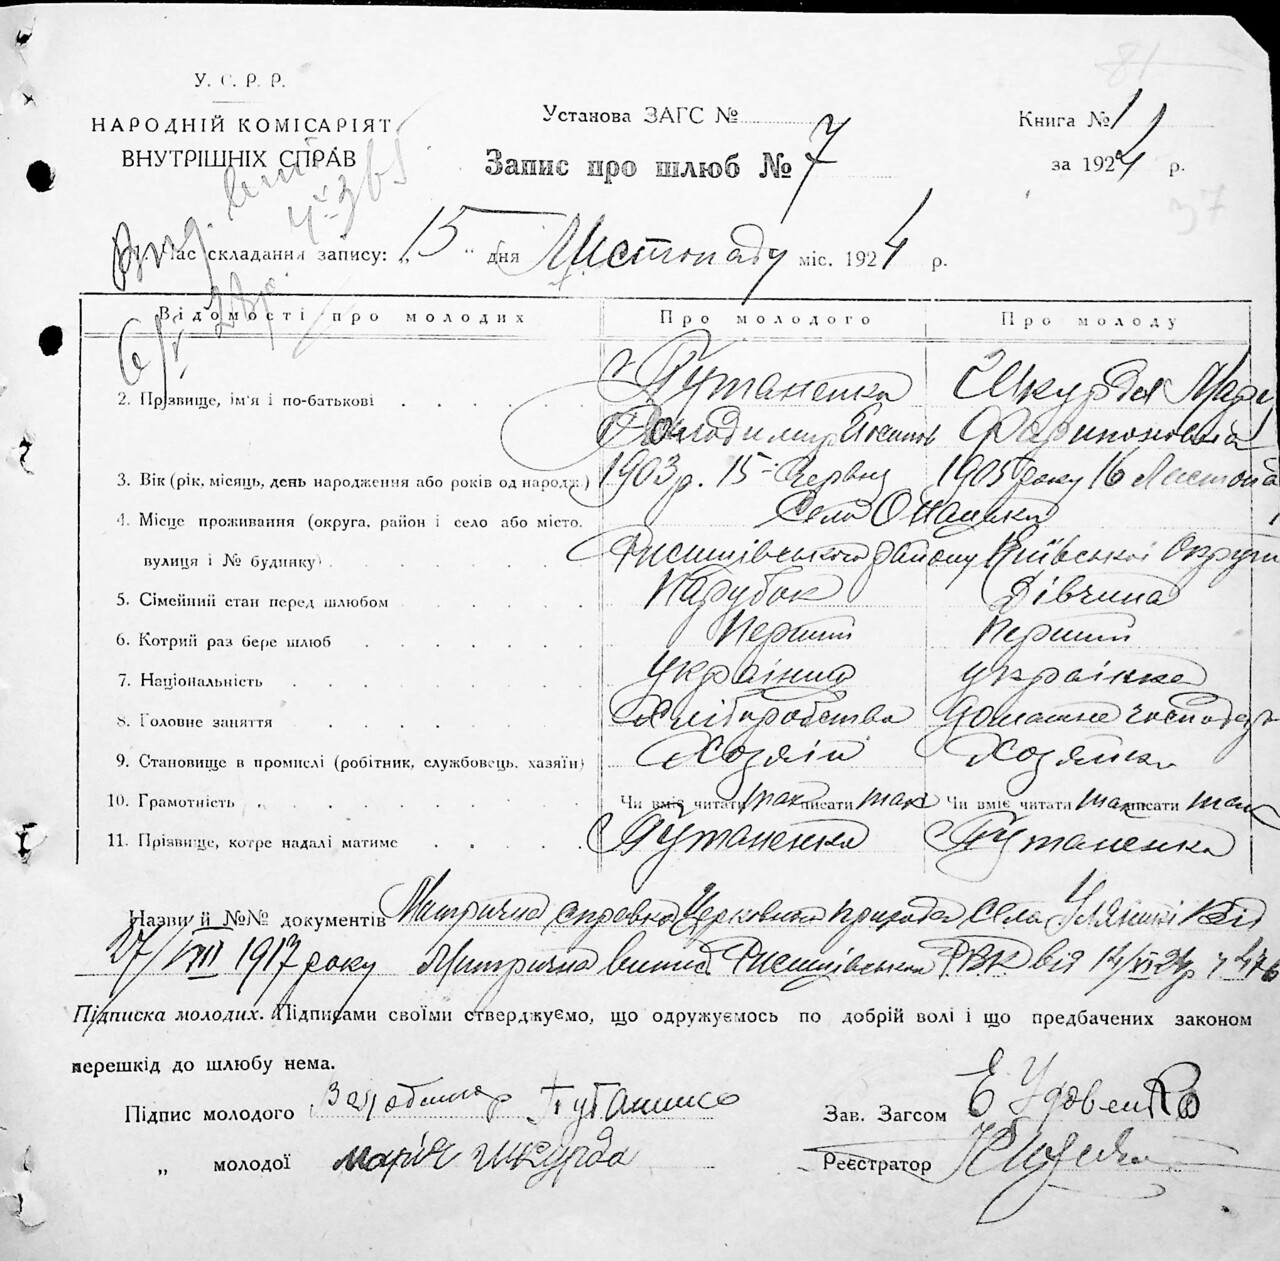 У. С. Р. Р.
НАРОДНІЙ КОМІСАРІЯТ
ВНУТРІШНІХ СПРАВ
Установа ЗАГС №
Запис про шлюб № 7
Книга № 1
за 1924 р.
81
37
Час складання запису: „15" дня Листопаду міс. 1924 р.
Відомості про молодих Про молодого Про молоду
2. Прізвище, ім'я і по-батькові . . . .
Путаненко Шкурда Марі
Володимир
3. Вік (рік, місяць, день народження або років од народж.) 1903 р. 15 Червня 1905 року 16 Листопа
4. Місце проживання (округа, район і село або місто, Село
вулиця і № будинку) Ржищівського району Київської Округи
5. Сімейний стан перед шлюбом Парубок Дівчина
6. Котрий раз бере шлюб Перший Перший
7. Національність Українец українка
8. Головне заняття Хліборобство домашнє господар
9. Становище в промислі (робітник, службовець, хазяїн) Хозяїн Хозяйка
10. Грамотність Чи вміє читати так писати так Чи вміє читати так писати так
11. Прізвище, котре надалі матиме Путаненко Путаненко
Назви й №№ документів Метрична справка села від
27/VIII 1917 року Метрична випис Ржищівського РВК від 14/XI 24 р.
Підписка молодих. Підписами своїми стверджуємо, що одружуємось по добрій волі і що предбачених законом
перешкід до шлюбу нема.
Підпис молодого
Зав. Загсом Е Удовенко
„ молодої Марія Шкурда
Реєстратор